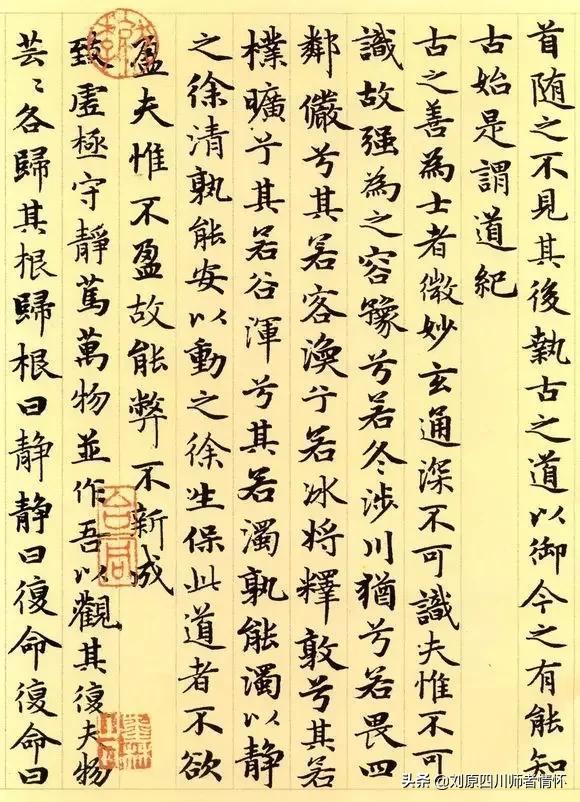 首随之不見其後執古之道以御今之有能知
古始是謂道紀
古之善為士者微妙玄通深不可識夫惟不可
識故强為之容豫兮若冬涉川猶兮若畏四
鄰儼兮其若客渙兮若冰将釋敦兮其若
樸曠兮其若谷渾兮其若濁孰能濁以静
之徐清孰能安以動之徐生保此道者不欲
盈夫惟不盈故能弊不新成
致虛極守静篤萬物並作吾以觀其復夫物
芸〻各歸其根歸根曰静静曰復命復命曰
头条 @刘原四川师者情怀